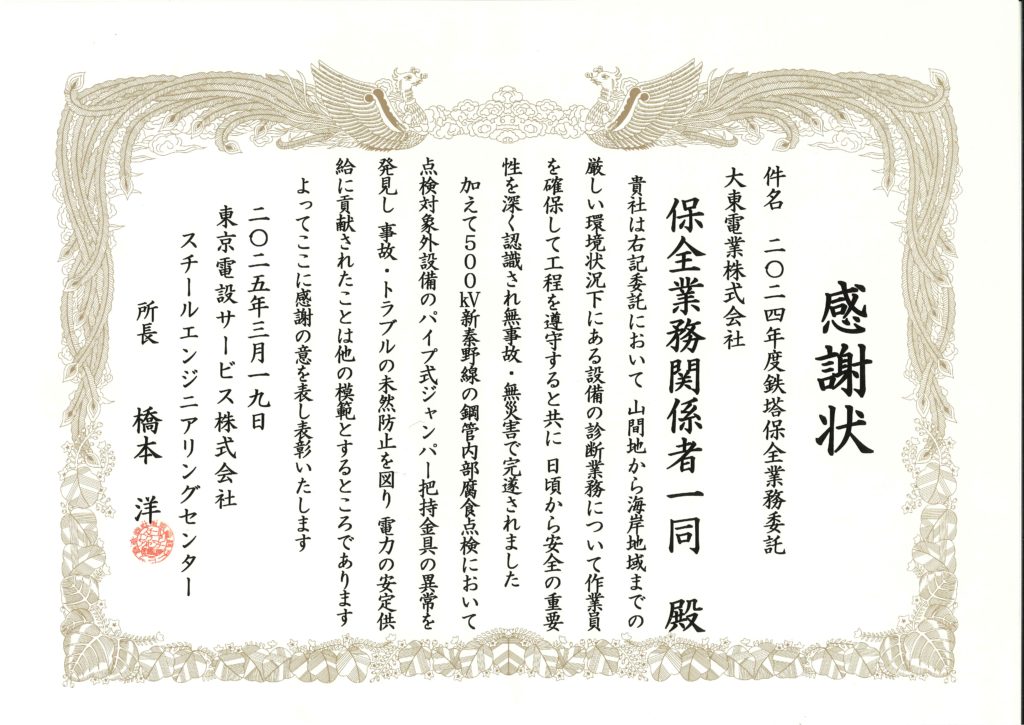 感謝状
件名　二〇二四年度鉄塔保全業務委託
大東電業株式会社
保全業務関係者一同　殿
貴社は右記委託において　山間地から海岸地域までの
厳しい環境状況下にある設備の診断業務について作業員
を確保して工程を遵守すると共に　日頃から安全の重要
性を深く認識され無事故・無災害で完遂されました
加えて500kV新秦野線の鋼管内部腐食点検において
点検対象外設備のパイプ式ジャンパー把持金具の異常を
発見し　事故・トラブルの未然防止を図り　電力の安定供
給に貢献されたことは他の模範とするところであります
よってここに感謝の意を表し表彰いたします
二〇二五年三月一九日
東京電設サービス株式会社
スチールエンジニアリングセンター
所長　橋本　洋